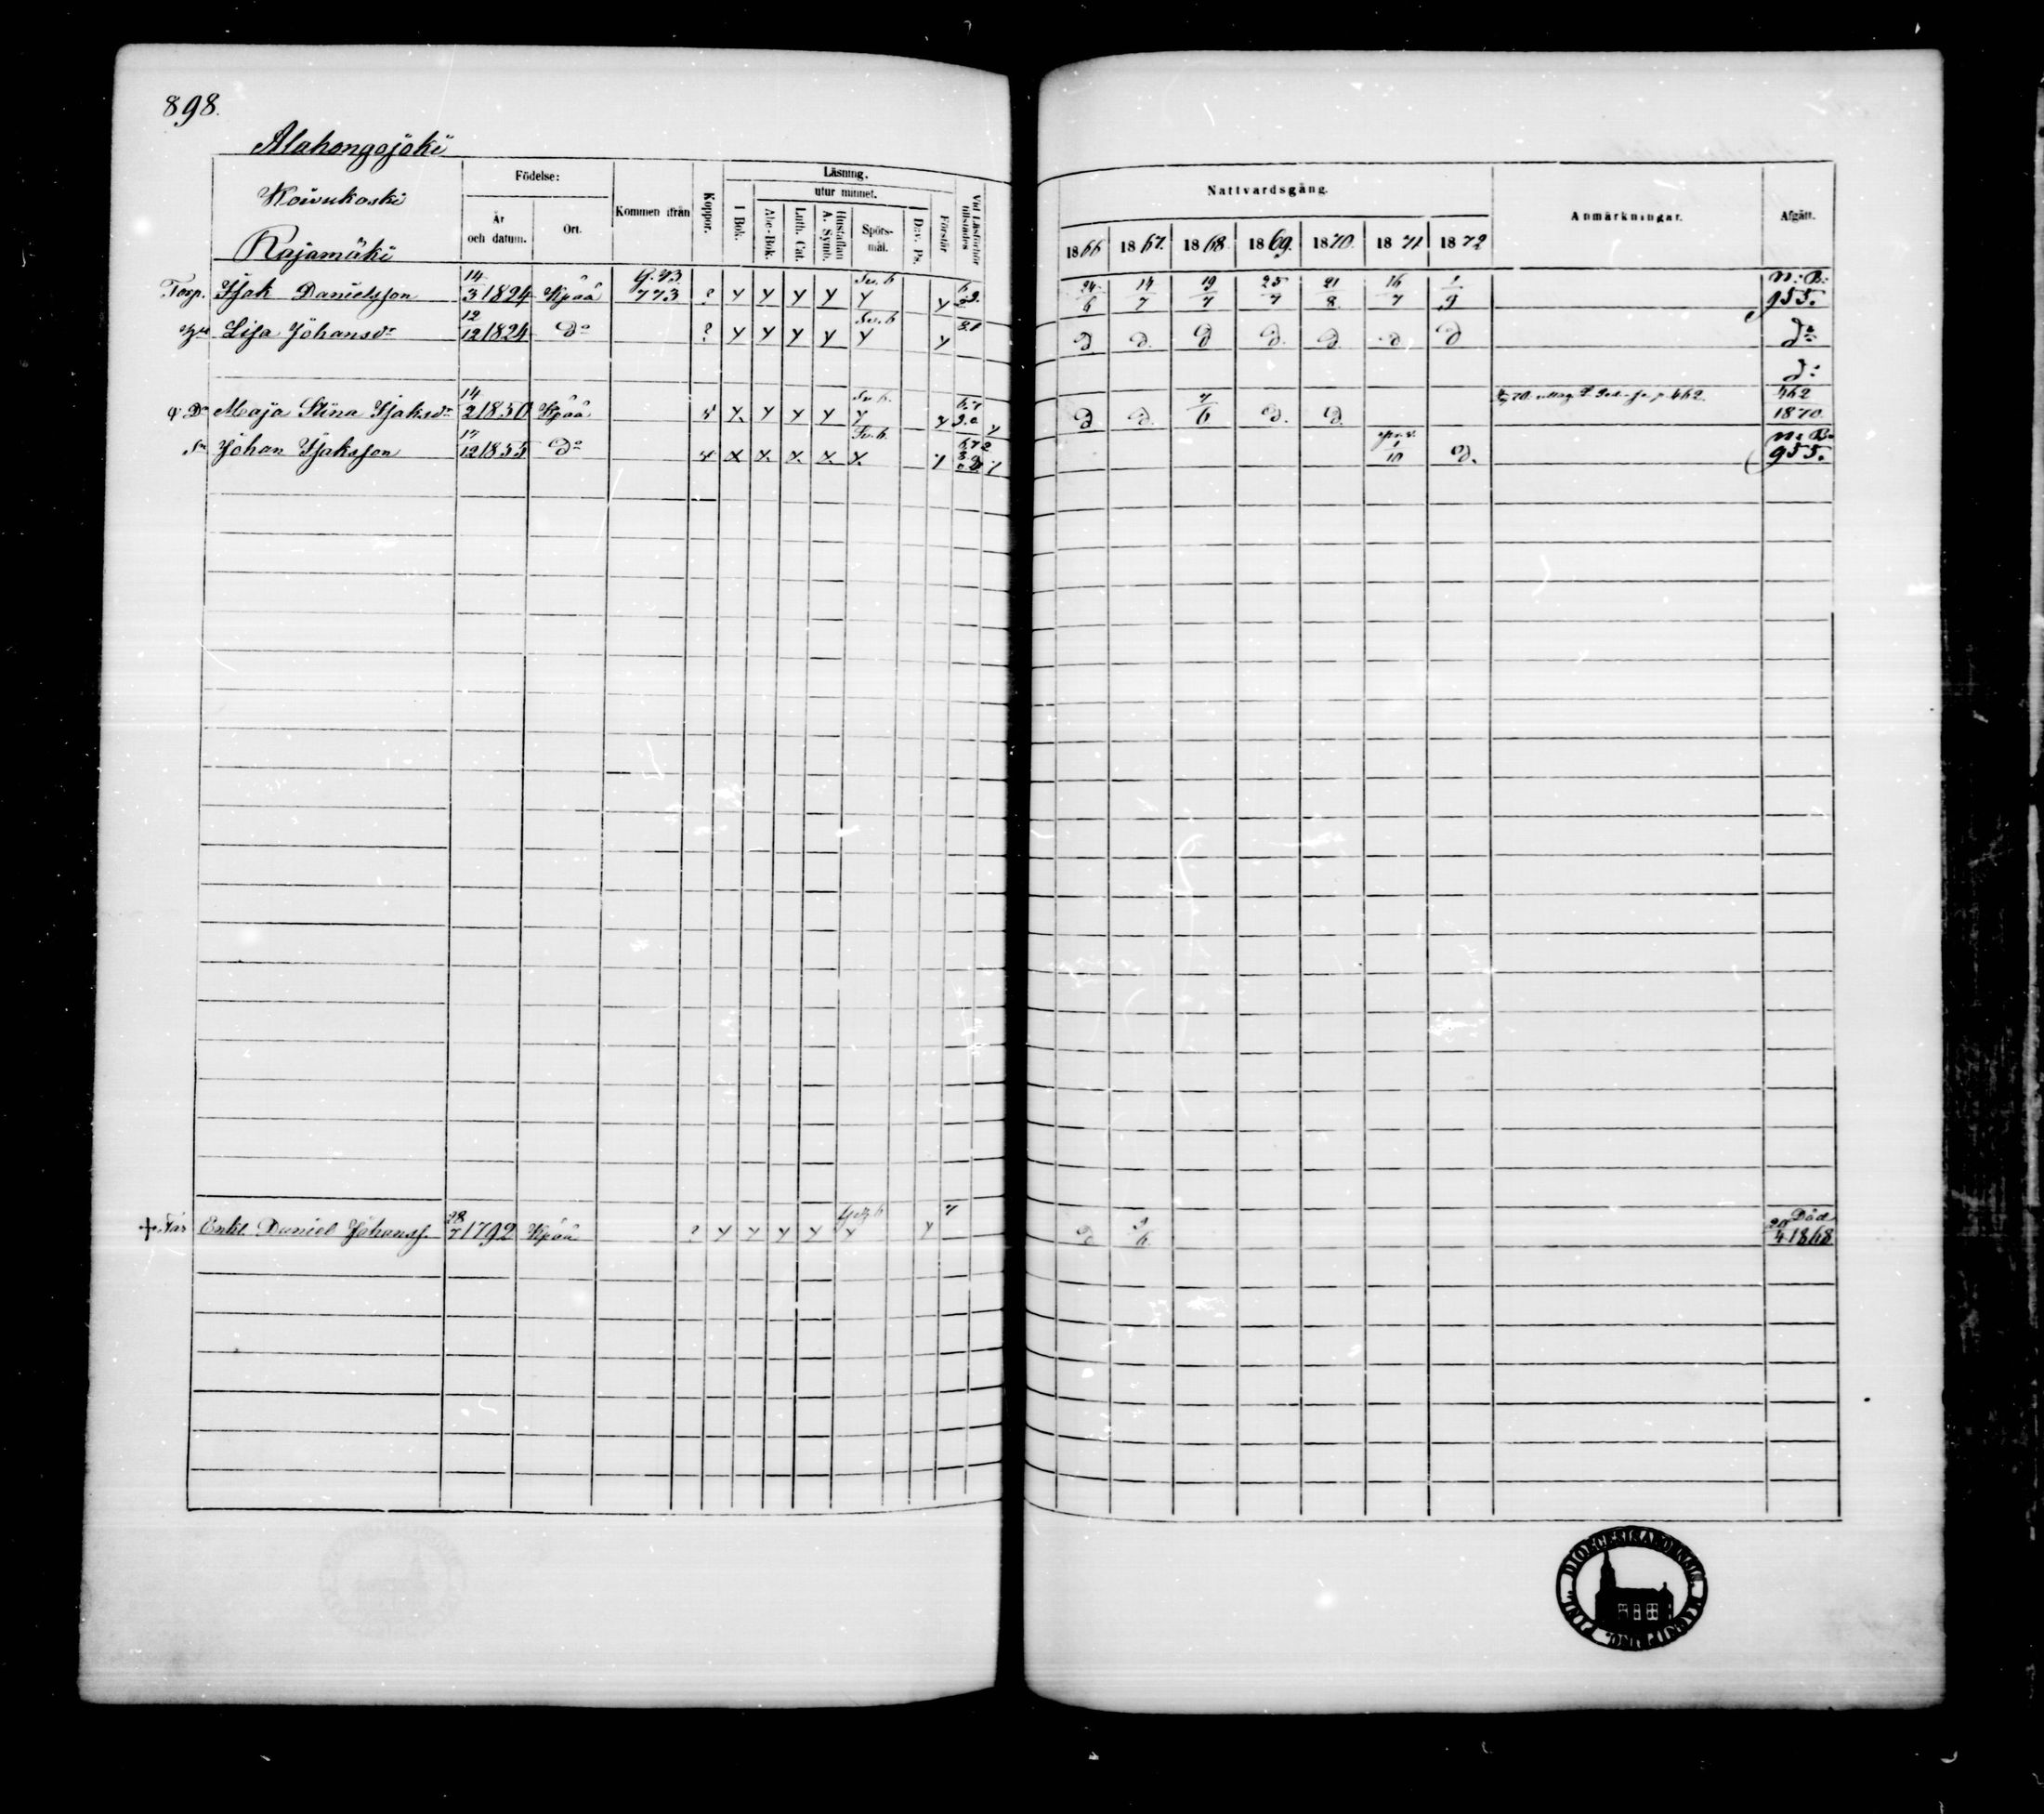 898.
Alahongojoki
Koivukoski
Rajamäki
Födelse:
År och datum.
Ort.
Kommen ifrån
Koppor.
Läsning.
I Bok.
utur minnet.
Abc-Bok.
Luth. Cat.
Hustaflan A. Symb.
Spörs-mål.
Dav. Ps.
Förstår
Vid Läsförhör tillstädes
Nattvardsgång.
1866 1867. 1868. 1869. 1870. 1871 1872
Anmärkningar.
Afgått.
Torp. Isak Danielsson 14/3 1824 Kpää G.B. 773 ? y y y y Sv. b y y 24/6 14/7 19/7 25/7 21/8 16/7 1/9 N: B: 955.
Lisa Johansdr 12/12 1824 Do ? y y y y Sv. b y y D D. D D. D. D D Do
Do
Maja Stina Isaksdr 14/2 1850 Kpää x y y y y y D D. 7/6 D. D. 462 1870
Sn Johan Isaksson 17/12 1855 Do x x x x x 1/10 D. N: B: 955.
+ Far Enkl. Daniel Johanss. 28/7 1792 Kpää ? y y y y y y D 9/6 Död 20/4 1868
DIOECESIS ABOENSIS